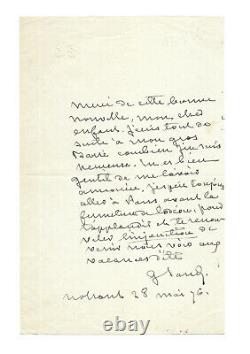 merci de cette bonne
nouvelle, mon cher
enfant. J'écris tout de
suite à mon gros
combien je suis
heureuse. tu es bien
gentil de me l'avoir
annoncé, j'espère toujours
aller à Paris avant la
fermeture pour
t'applaudir et te renou
veler l'injonction de
venir nous voir aux
vacances d'été
G Sand.
Nohant 28 mai 76.
© 123RF